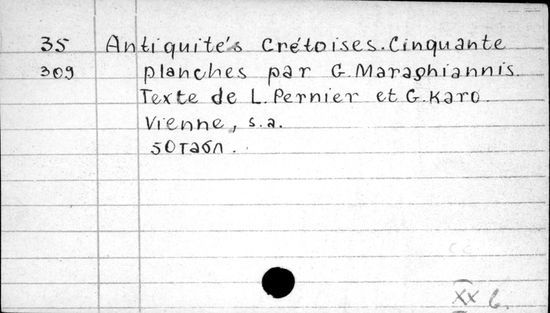 35 Antiquités Crétoises. Cinquante
309 planches par G. Maraghiannis.
Texte de L. Pernier et G. Karo.
Vienne, s.a.
50 табл.
XX б.